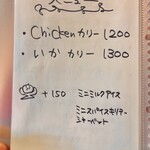 ・Chickenカリー 1200
・いか カリー 1300
+150 ミニミルクアイス
ミニスパイスキリテー
シャーベット